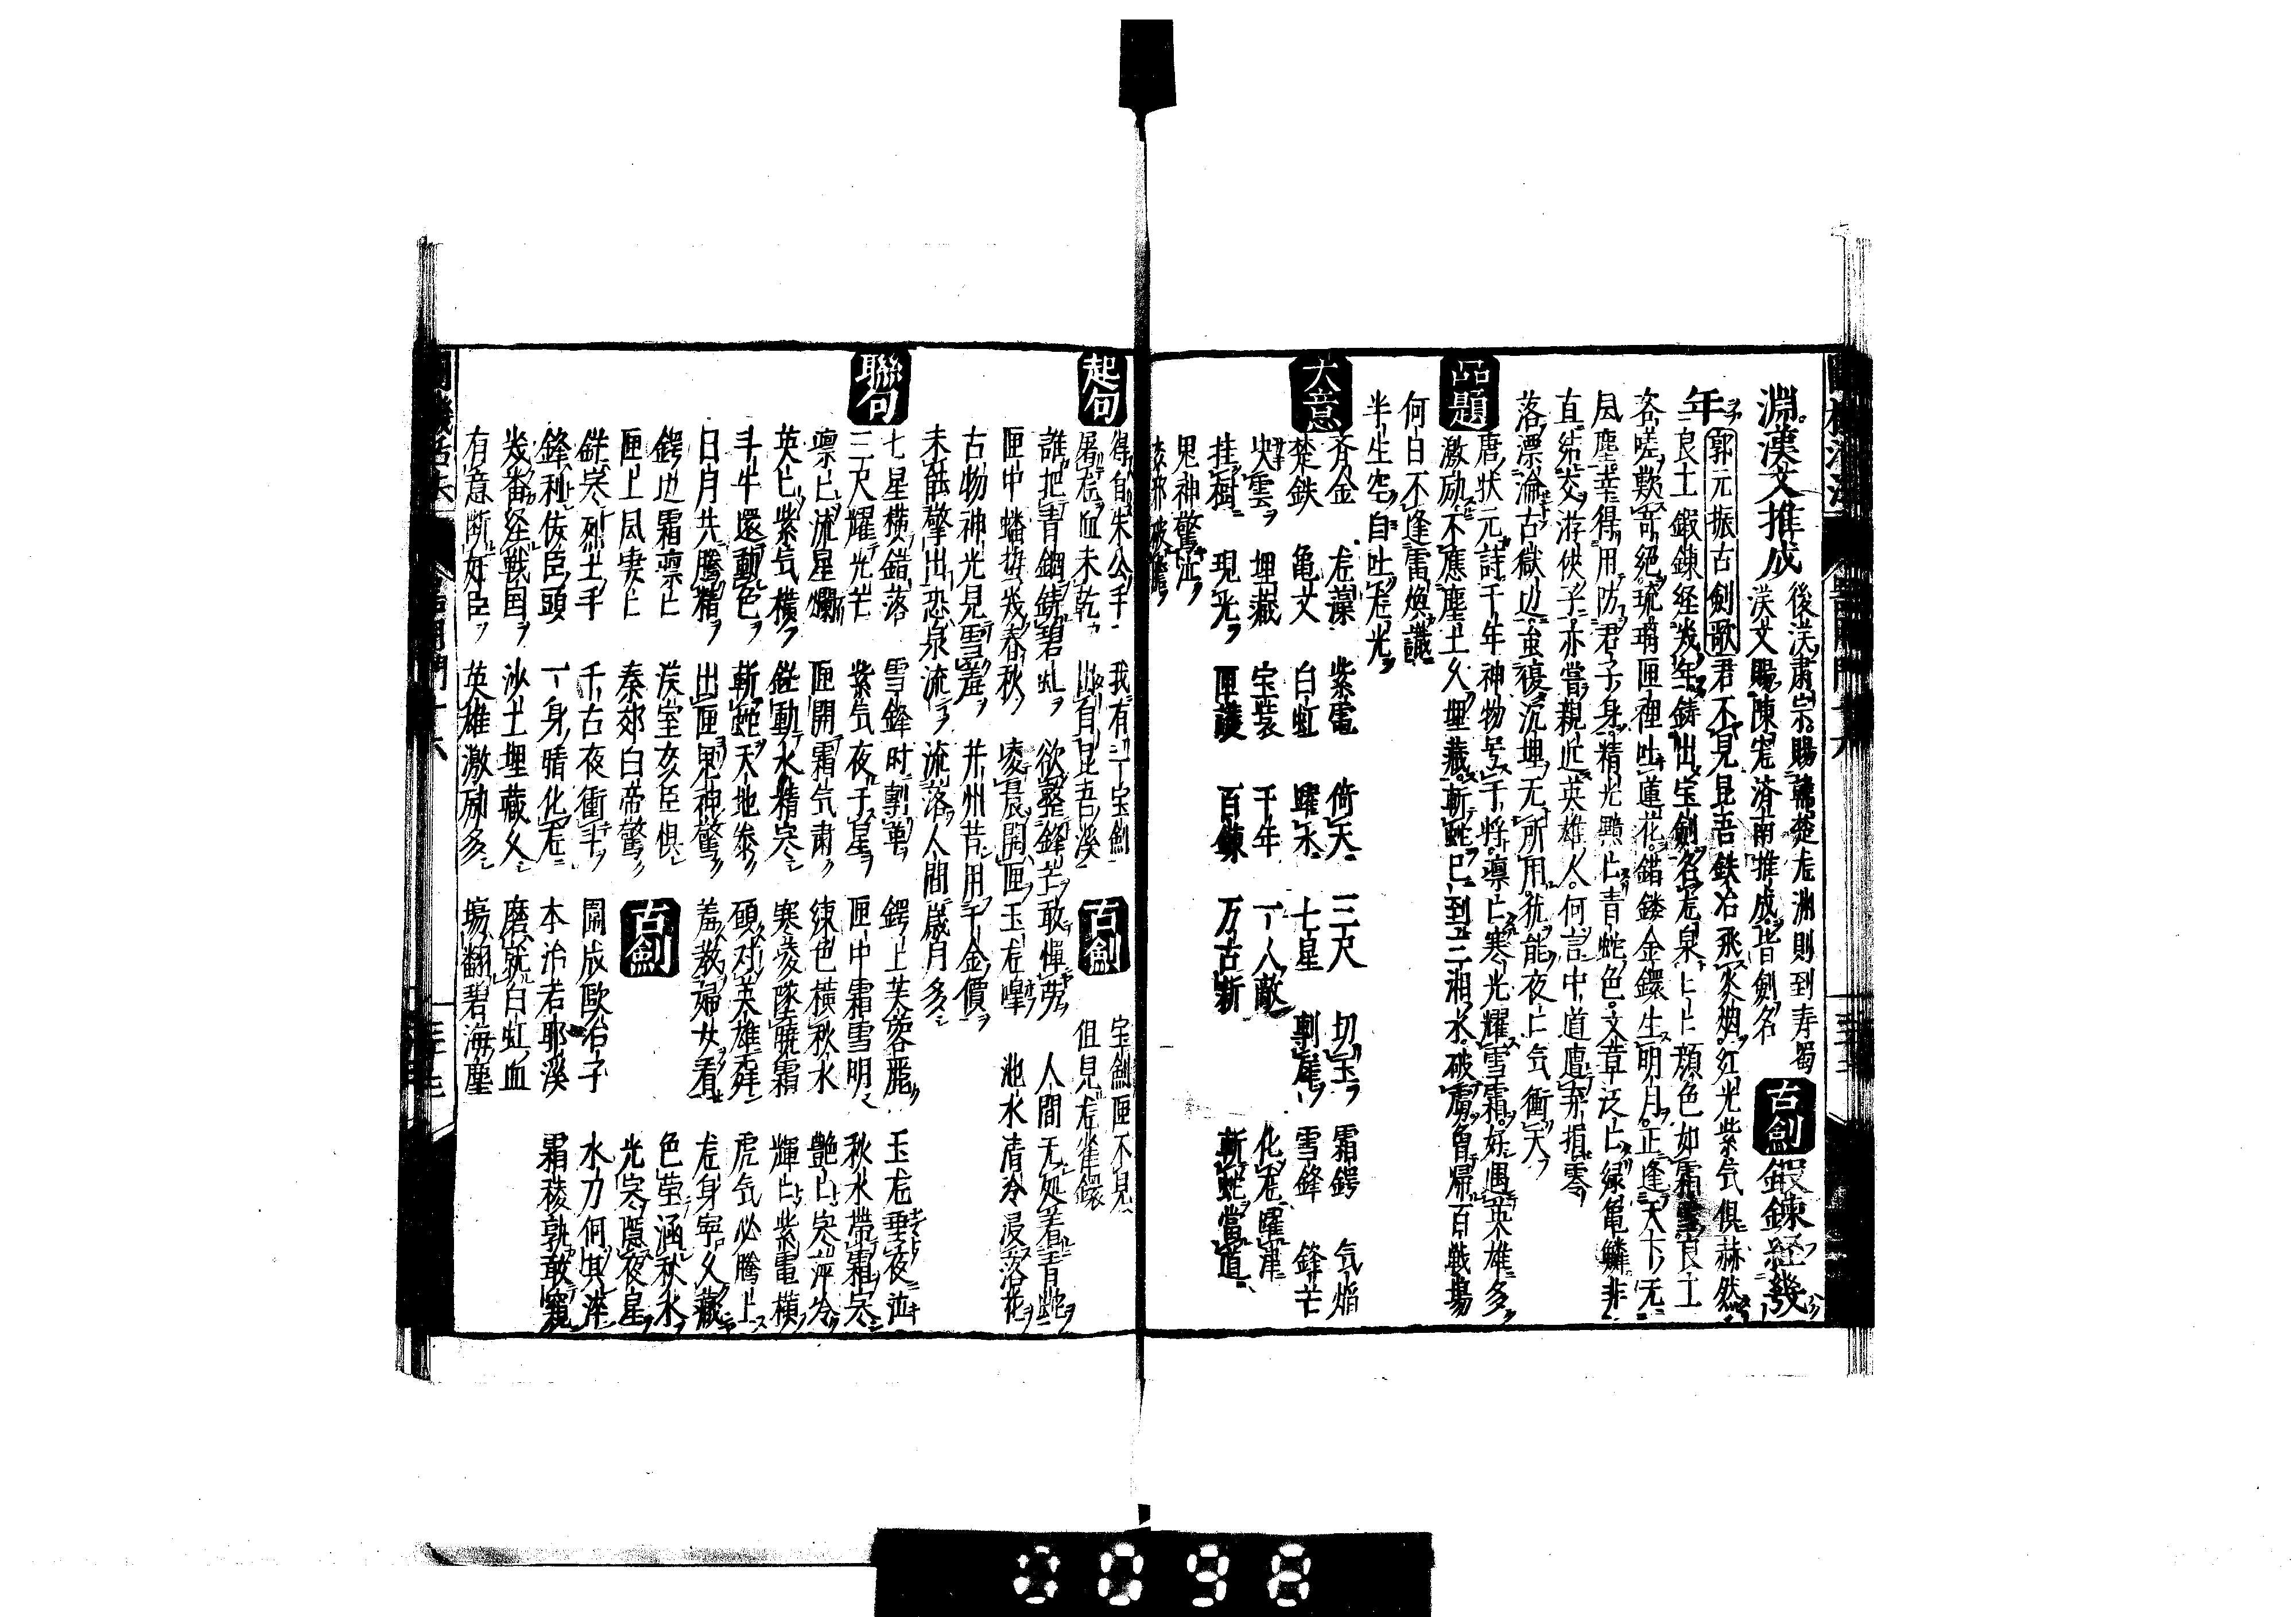 淵漢文推成
後漢肅宗賜韓楚尨淵則到寿蜀
漢文賜陳寵済南推成皆劍名
古劍
鍛錬経幾
年
郭元振古劍歌
君不見昆吾鉄冶飛炎烟紅光紫气俱赫然
良工鍛錬経幾年鋳出宝劍名尨泉尨泉顔色如霜雪良工
咨嗟歎奇絕琉璃匣裡吐蓮花錯鏤金鐶生明月正逢天下无
風塵幸得用防君子身精光黯黯青蛇色文章泛泛緑亀鱗非
直結交游俠子亦嘗親近英雄人何言中道遭弃捐零
落漂淪古獄辺虽復沉埋无所用犹能夜夜气衝天
品題
唐状元詩千年神物号干将凛凛寒光耀雪霜好遇英雄多
激励不應塵土久埋藏斬蛇已到三湘水破虜曾帰百戦場
何日不逢雷煥識
半生空自吐尨光
大意
斉金 尨藻 紫電 倚天 三尺 切玉 霜鍔 气焔
楚鉄 亀文 白虹 躍水 七星 剸犀 雪鋒 鋒芒
决雲 埋藏 宝装 千年 一人敵 化尨躍津
挂樹 現光 匣護 百錬 万古新 斬蛇當道
鬼神驚泣
起句
得自朱公手 我有一宝劍
屠尨血未乾 出自昆吾溪
古劍
宝劍匣不見
但見尨雀鐶
誰把青鋼鋳碧虬 欲整鋒芒敢憚劳 人間无処着青蛇
匣中蟠拆幾春秋 凌晨開匣玉尨嘷 池水清冷浸落花
古物神光見雪羞 并州昔用千金價
未能擎出恐泉流 流落人間歳月多
聯句
七星横錯落 雪鋒时剸革 鍔上芙蓉𪚮 玉尨垂夜泣
三尺耀光芒 紫气夜干星 匣中霜雪明 秋水帯霜寒
凛凛流星爛 匣開霜气肅 練色横秋水 艶艶寒萍冷
英英紫气横 鋏動水精寒 寒夌墜曉霜 輝輝紫電横
斗牛還動色 斬蛇天地惨 頋对英雄舞 虎气必騰上
日月共騰精 出匣鬼神驚 羞教婦女看 尨身寧久藏
鍔辺霜凛凛 漢室奸臣惧
古劍
色莹涵秋水
匣上風凄凄 秦郊白帝驚 光寒隠夜星
鋏寒烈士手 千古夜衝斗 開成歐冶子 水力何其淬
鋒利佞臣頭 一身晴化尨 本冶若耶溪 霜稜孰敢窺
幾番経戦国 沙土埋藏久 磨就白虹血
有意断奸臣 英雄激励多 塲翻碧海塵
0098